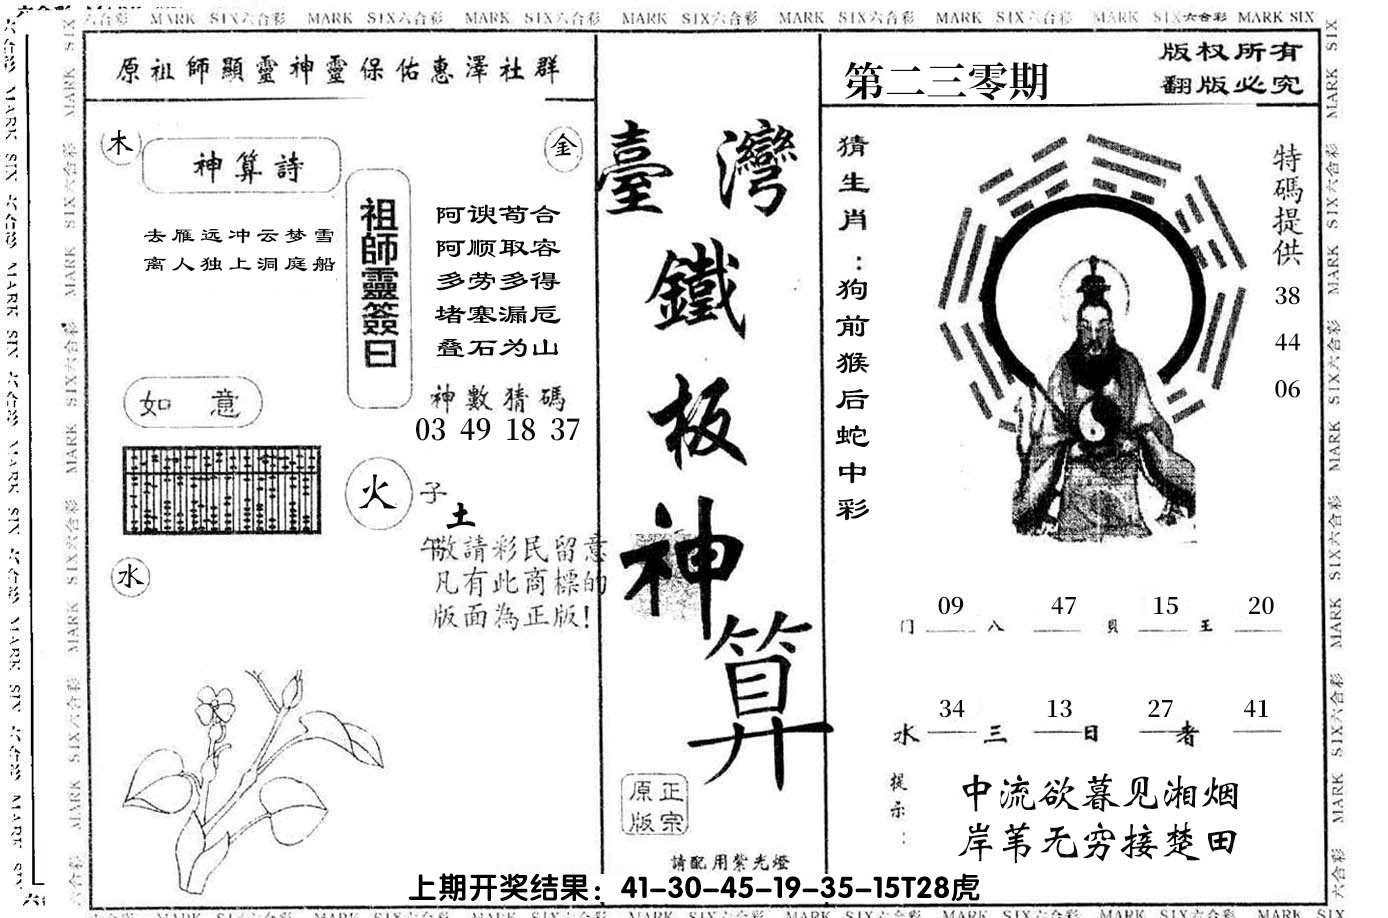 六合彩 MARK SIX六合彩 MARK SIX六合彩 MARK SIX六合彩 MARK SIX六合彩 MARK SIX六合彩 MARK SIX六合彩 MARK SIX六合彩 MARK SIX
原祖師顯靈神靈保佑惠澤社群
木
神算詩
金
去雁远冲云梦雪
离人独上洞庭船
祖師靈簽曰
阿谀苟合
阿顺取容
多劳多得
堵塞漏卮
叠石为山
神數猜碼
03 49 18 37
如 意
火
子
土
午
水
敬請彩民留意
凡有此商標的
版面為正版!
臺灣
鐵
板
神
算
正宗
原版
請配用紫光燈
第二三零期
版权所有
翻版必究
猜生肖:狗前猴后蛇中彩
特碼提供
38
44
06
09 47 15 20
门 八 貝 王
34 13 27 41
水 三 日 者
提示:
中流欲暮见湘烟
岸苇无穷接楚田
上期开奖结果：41-30-45-19-35-15T28虎